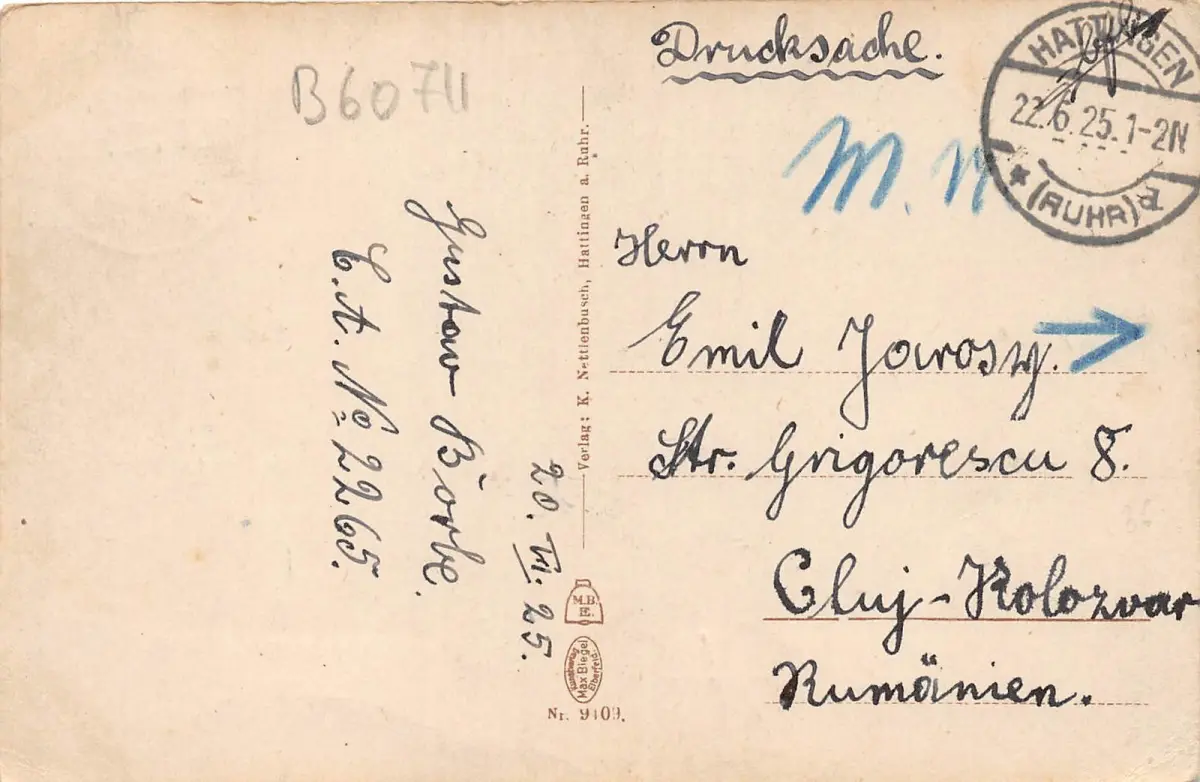 B60711
Gustav Borbe.
C.A. № 2265.
20. VI. 25.
Verlag: K. Nettienbusch, Hattingen a. Ruhr.
M.B.
E.
Kunstverlag
Max Biegel
Elberfeld.
Nr. 9409.
Drucksache.
HATTINGEN
22.6.25.1-2N
* (RUHR) d
M.
Herrn
Emil Jarosy.
Str. Grigorescu 8.
Cluj-Kolozvar
Rumänien.